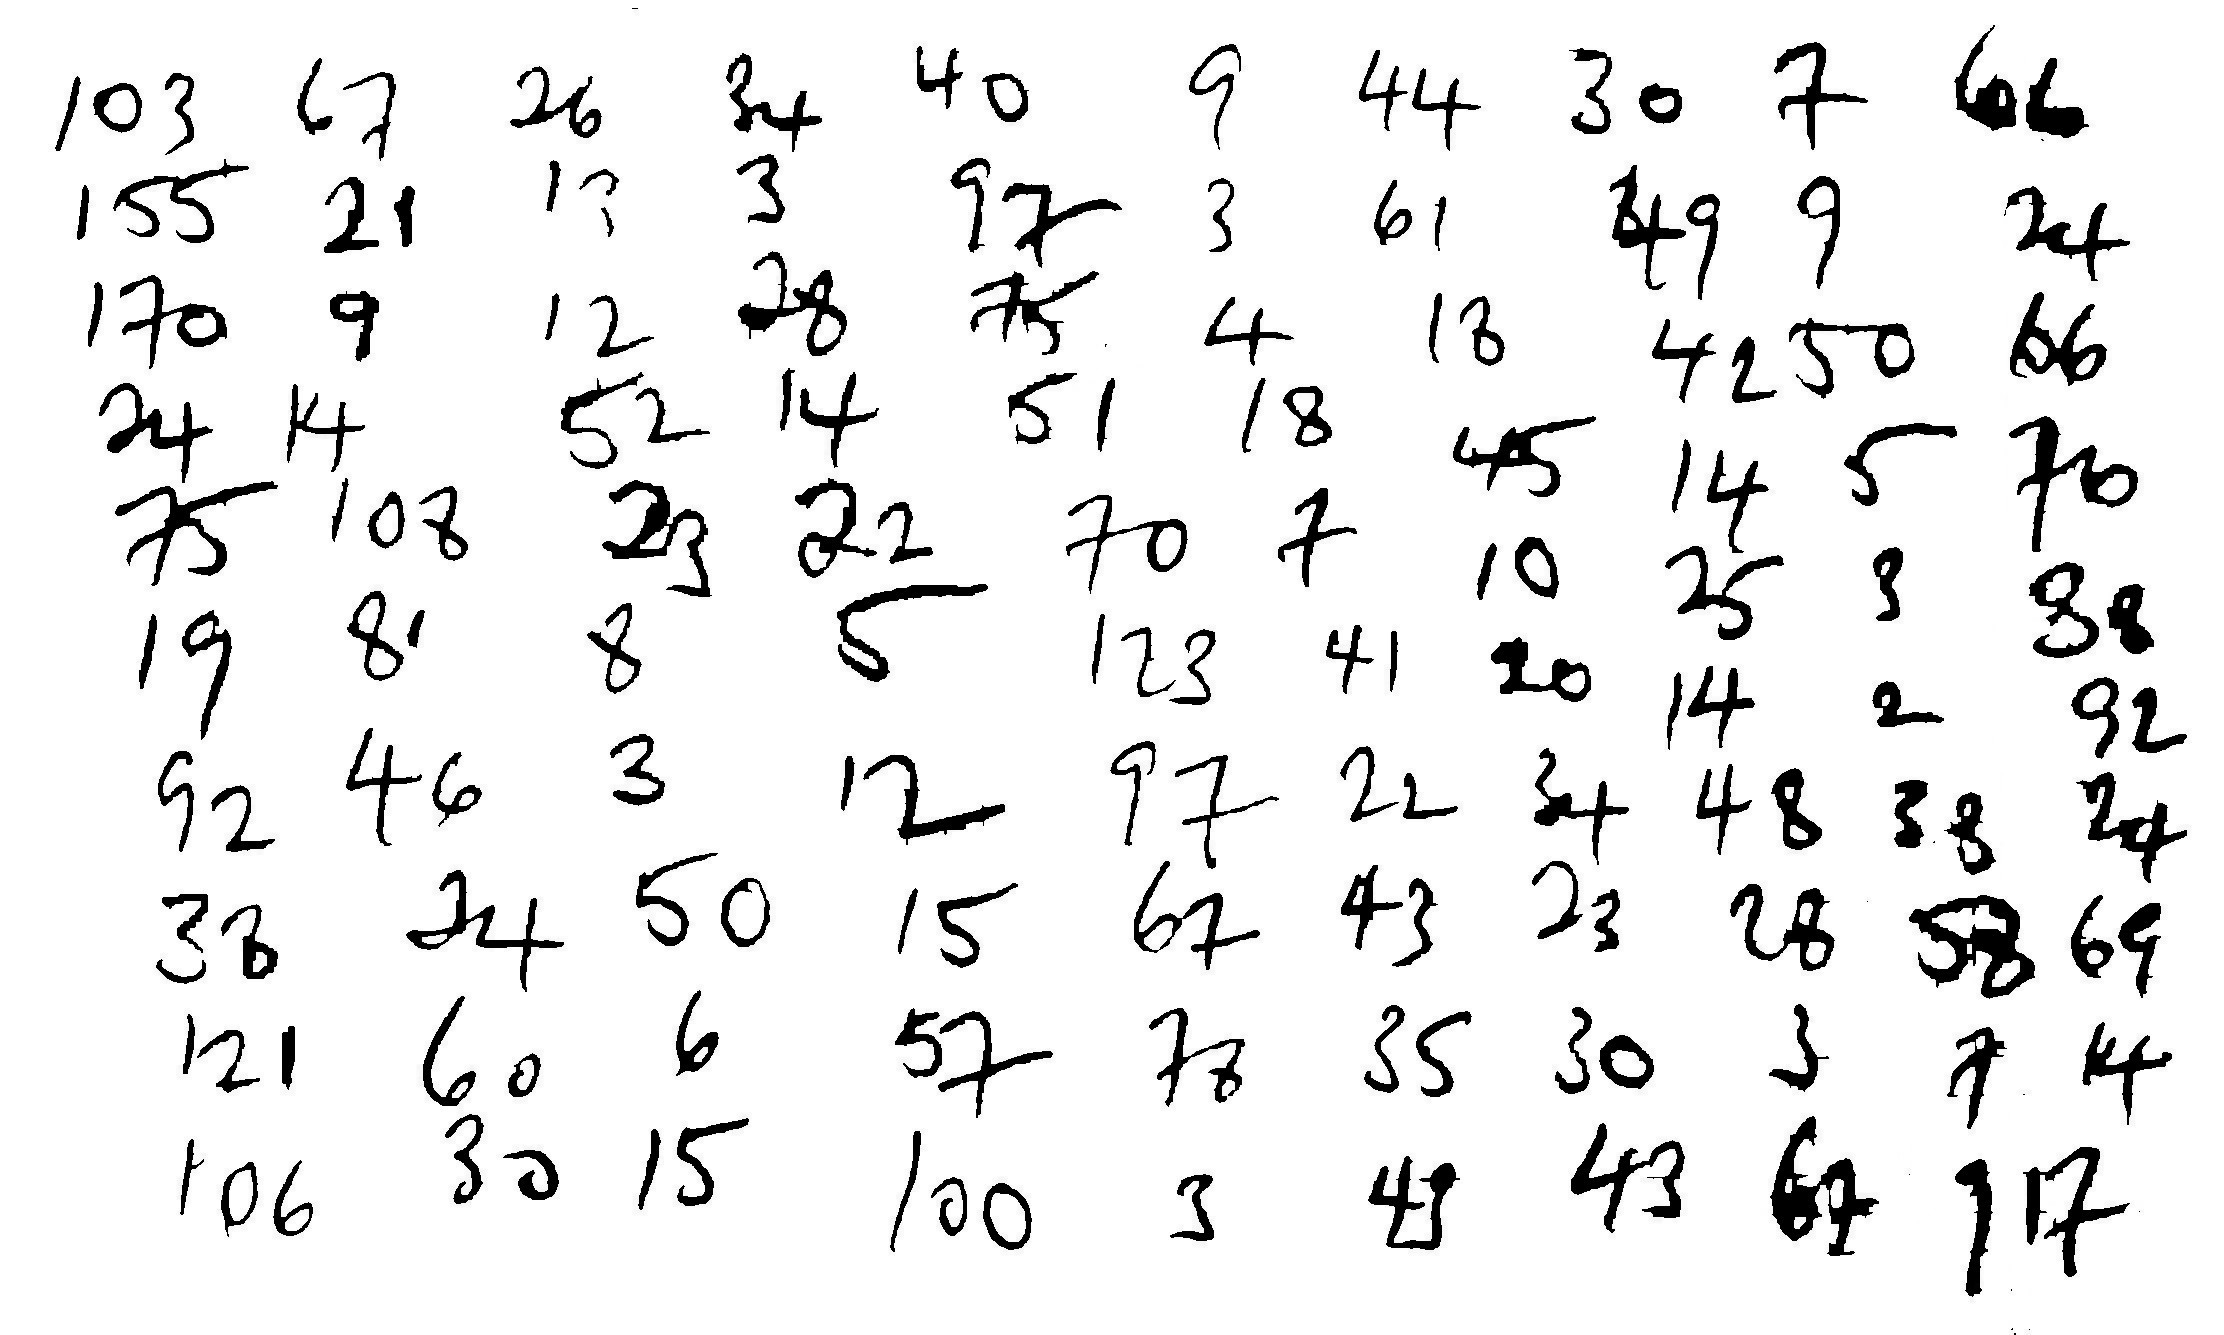 103 67 26 34 40 9 44 30 7 66
155 21 13 3 97 3 61 49 9 24
170 9 12 28 75 4 18 42 50 66
24 14 52 14 51 18 45 14 5 70
75 108 23 22 70 7 10 25 3 38
19 81 8 5 123 41 20 14 2 92
92 46 3 12 97 22 34 48 38 24
38 24 50 15 67 43 23 28 58 69
121 60 6 57 78 35 30 3 7 14
106 30 15 100 3 43 67 9 17